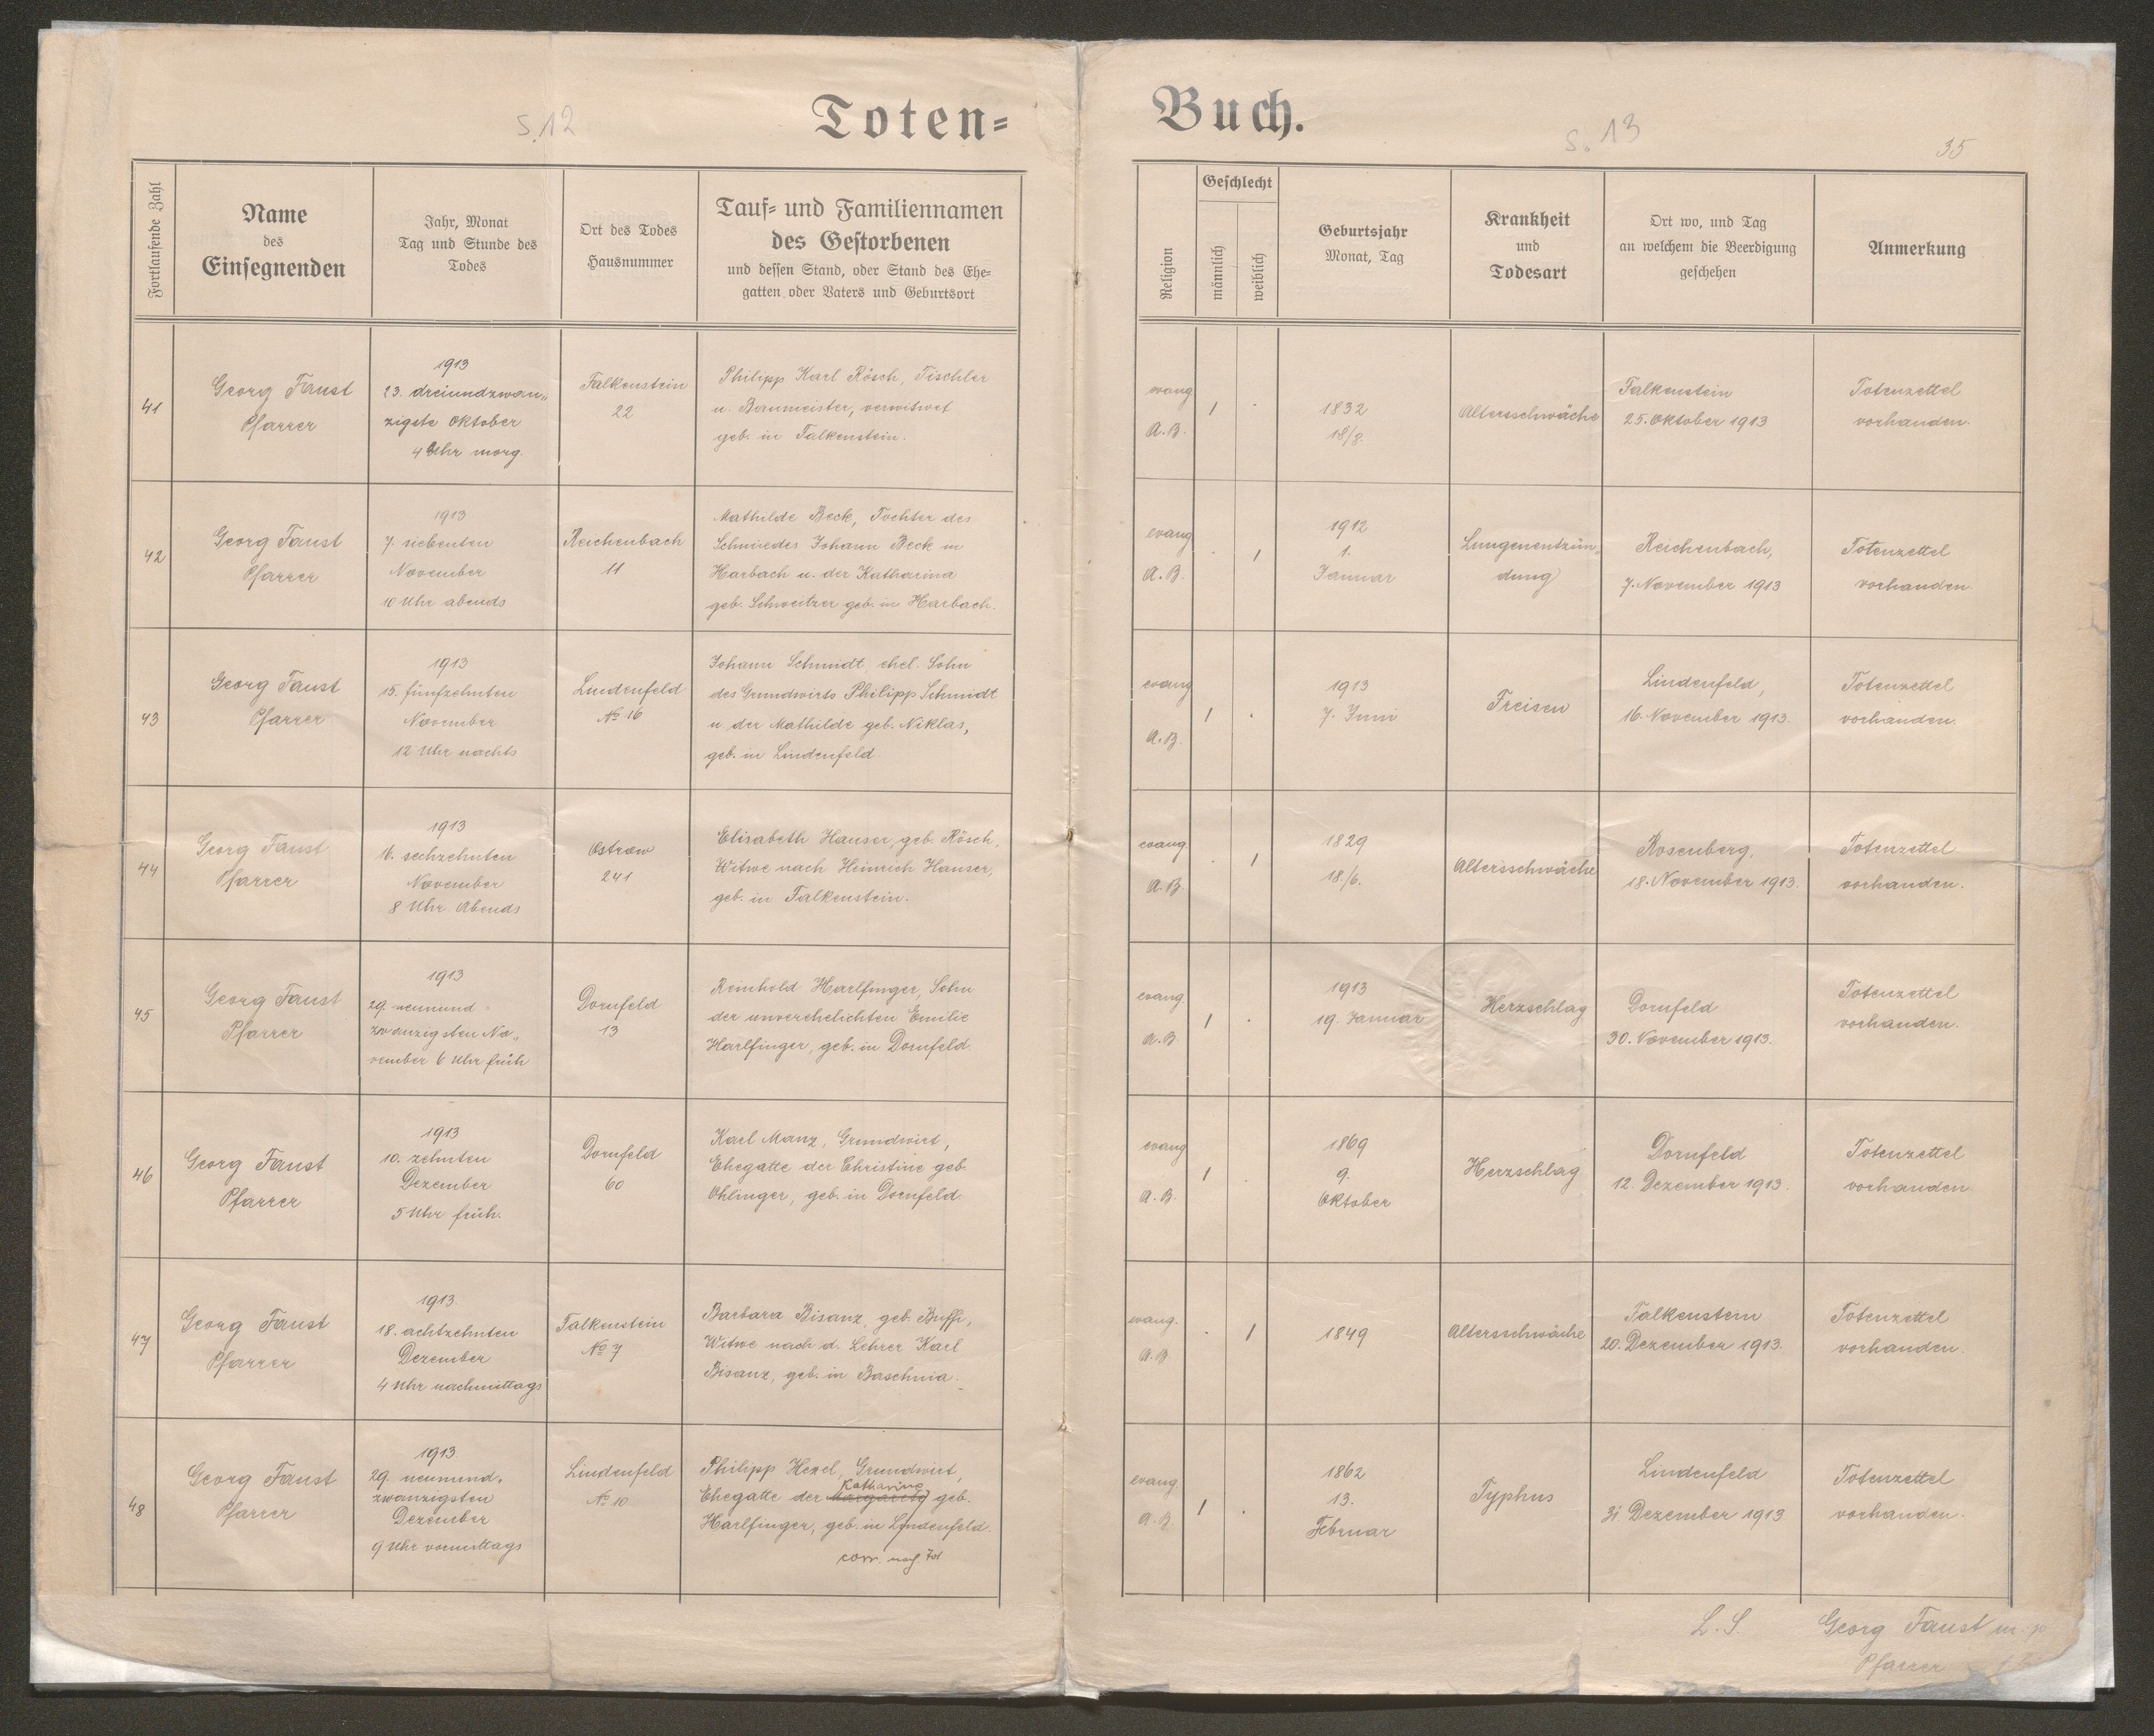 S. 12
Toten=
Buch.
S. 13
35
Fortlaufende Zahl
Name
des
Einsegnenden
Jahr, Monat
Tag und Stunde des
Todes
Ort des Todes
Hausnummer
Tauf= und Familiennamen
des Gestorbenen
und dessen Stand, oder Stand des Ehe=
gatten oder Vaters und Geburtsort
Religion
Geschlecht
männlich
weiblich
Geburtsjahr
Monat, Tag
Krankheit
und
Todesart
Ort wo, und Tag
an welchem die Beerdigung
geschehen
Anmerkung
41
Georg Faust
Pfarrer
1913
23. dreiundzwan„
zigste Oktober
4 Uhr morg.
Falkenstein
22
Philipp Karl Rösch, Tischler
u. Baumeister, verwitwet
geb. in Falkenstein.
evang
A.B.
1
.
1832
18/8.
Altersschwäche
Falkenstein
25. Oktober 1913
Totenzettel
vorhanden.
42
Georg Faust
Pfarrer
1913
7. siebenten
November
10 Uhr abends
Reichenbach
11
Mathilde Beck, Tochter des
Schmiedes Johann Beck in
Harbach u. der Katharina
geb. Schweitzer geb. in Harbach.
evang
A.B.
.
1
1912
1.
Januar
Lungenentzün„
dung
Reichenbach,
7. November 1913
Totenzettel
vorhanden.
43
Georg Faust
Pfarrer
1913
15. fünfzehnten
November
12 Uhr nachts
Lindenfeld
No 16
Johann Schmidt ehel. Sohn
des Grundwirts Philipp Schmidt
u. der Mathilde geb. Niklas,
geb. in Lindenfeld.
evang
A.B.
1
.
1913
7. Juni
Freisen
Lindenfeld,
16. November 1913.
Totenzettel
vorhanden.
44
Georg Faust
Pfarrer
1913
16. sechzehnten
November
8 Uhr Abends
Ostrow
241
Elisabeth Hauser, geb. Rösch,
Witwe nach Heinrich Hauser,
geb. in Falkenstein.
evang
A.B.
.
1
1829
18./6.
Altersschwäche
Rosenberg,
18. November 1913.
Totenzettel
vorhanden.
45
Georg Faust
Pfarrer
1913
29. neunund
zwanzigsten No„
vember 6 Uhr früh
Dornfeld
13
Reinhold Harlfinger, Sohn
der unverehelichten Emilie
Harlfinger, geb. in Dornfeld.
evang
A.B.
1
.
1913
19. Januar
Herzschlag
Dornfeld
30. November 1913.
Totenzettel
vorhanden.
46
Georg Faust
Pfarrer
1913
10. zehnten
Dezember
5 Uhr früh.
Dornfeld
60
Karl Manz, Grundwirt,
Ehegatte der Christine geb.
Ohlinger, geb. in Dornfeld.
evang
A.B.
1
.
1869
9.
Oktober
Herzschlag
Dornfeld
12. Dezember 1913.
Totenzettel
vorhanden.
47
Georg Faust
Pfarrer
1913.
18. achtzehnten
Dezember
4 Uhr nachmittags
Falkenstein
No 7
Barbara Bisanz, geb. Buffi,
Witwe nach d. Lehrer Karl
Bisanz, geb. in Baschnia.
evang.
A.B.
.
1
1849
Altersschwäche
Falkenstein
20. Dezember 1913.
Totenzettel
vorhanden.
48
Georg Faust
Pfarrer
1913.
29. neunund„
zwanzigsten
Dezember
9 Uhr vormittags
Lindenfeld
No 10
Philipp Hexel, Grundwirt,
Katharine
Ehegatte der Margarete geb.
Harlfinger, geb. in Lindenfeld.
corr. nach Tot
evang.
A.B.
1
.
1862
13.
Februar
Typhus
Lindenfeld
31 Dezember 1913
Totenzettel
vorhanden.
L. S.
Georg Faust m. p
Pfarrer